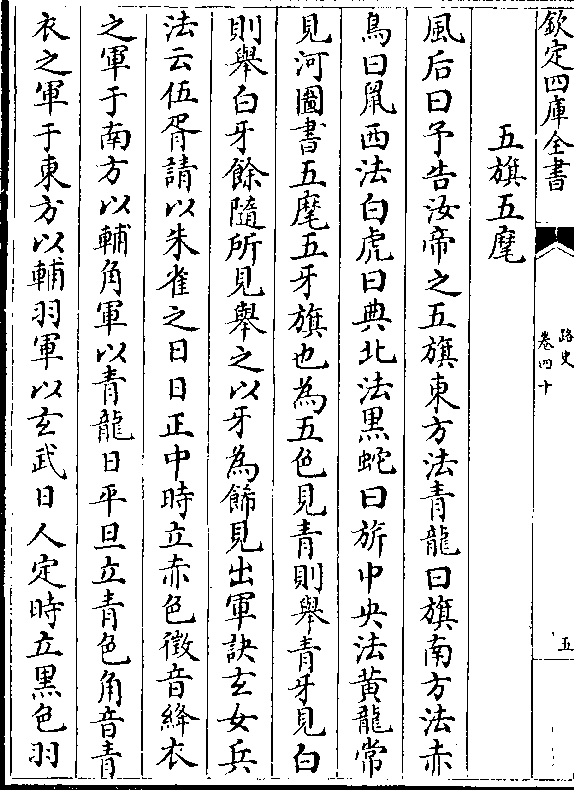 欽定四庫全書
路史
卷四十
五
五旗五麾
風后曰予告汝帝之五旗東方法青龍曰旗南方法赤
鳥曰鼠西法白虎曰典北法黑蛇曰旂中央法黃龍常
見河圖書五麾五牙旗也為五色見青則舉青牙見白
則舉白牙餘隨所見舉之以牙為餙見出軍訣玄女兵
法云伍胥請以朱雀之日日正中時立赤色徵音絳衣
之軍于南方以輔角軍以青龍日平旦立青色角音青
衣之軍于東方以輔羽軍以玄武日人定時立黑色羽